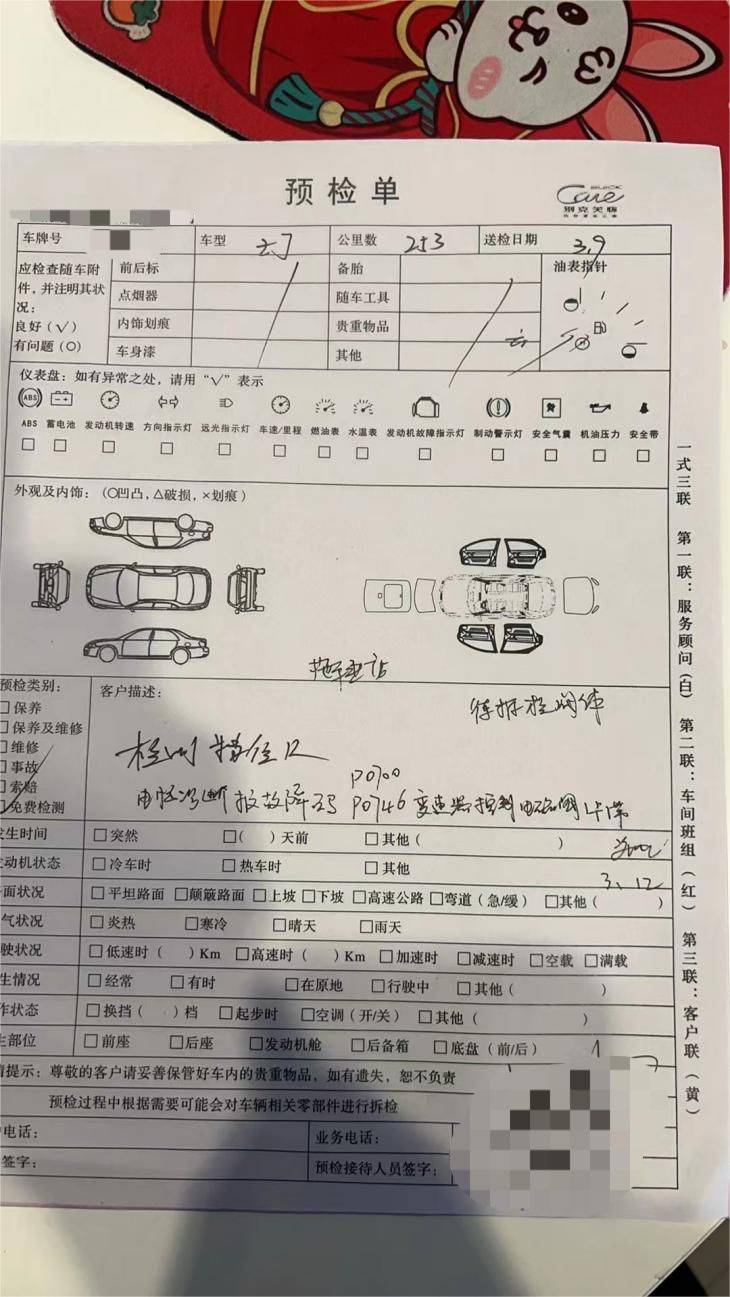 预检单
BUICK Care
别克关怀
车牌号 车型 公里数 253 送检日期 3.9
应检查随车附件，并注明其状况：
良好（√）
有问题（○）
前后标 备胎 油表指针
点烟器 随车工具
内饰划痕 贵重物品
车身漆 其他
仪表盘：如有异常之处，请用“√”表示
ABS 蓄电池 发动机转速 方向指示灯 远光指示灯 车速/里程 燃油表 水温表 发动机故障指示灯 制动警示灯 安全气囊 机油压力 安全带
外观及内饰：（○凹凸，△破损，×划痕）
拖车进站
预检类别： 客户描述：
待拆检阀体
□保养
□保养及维修
□维修
□事故
□索赔
□免费检测
P0700
电脑诊断报故障码 P0746 变速器控制电磁阀卡滞
3.12
发生时间 □突然 □（ ）天前 □其他（ ）
发动机状态 □冷车时 □热车时 □其他
面状况 □平坦路面 □颠簸路面 □上坡 □下坡 □高速公路 □弯道（急/缓） □其他（ ）
气状况 □炎热 □寒冷 □晴天 □雨天
驶状况 □低速时（ ）Km □高速时（ ）Km □加速时 □减速时 □空载 □满载
生情况 □经常 □有时 □在原地 □行驶中 □其他（ ）
作状态 □换挡（ ）档 □起步时 □空调（开/关） □其他（ ）
生部位 □前座 □后座 □发动机舱 □后备箱 □底盘（前/后）
提示：尊敬的客户请妥善保管好车内的贵重物品，如有遗失，恕不负责
预检过程中根据需要可能会对车辆相关零部件进行拆检
电话： 业务电话：
签字： 预检接待人员签字：
一式三联 第一联：服务顾问（白） 第二联：车间班组（红） 第三联：客户联（黄）